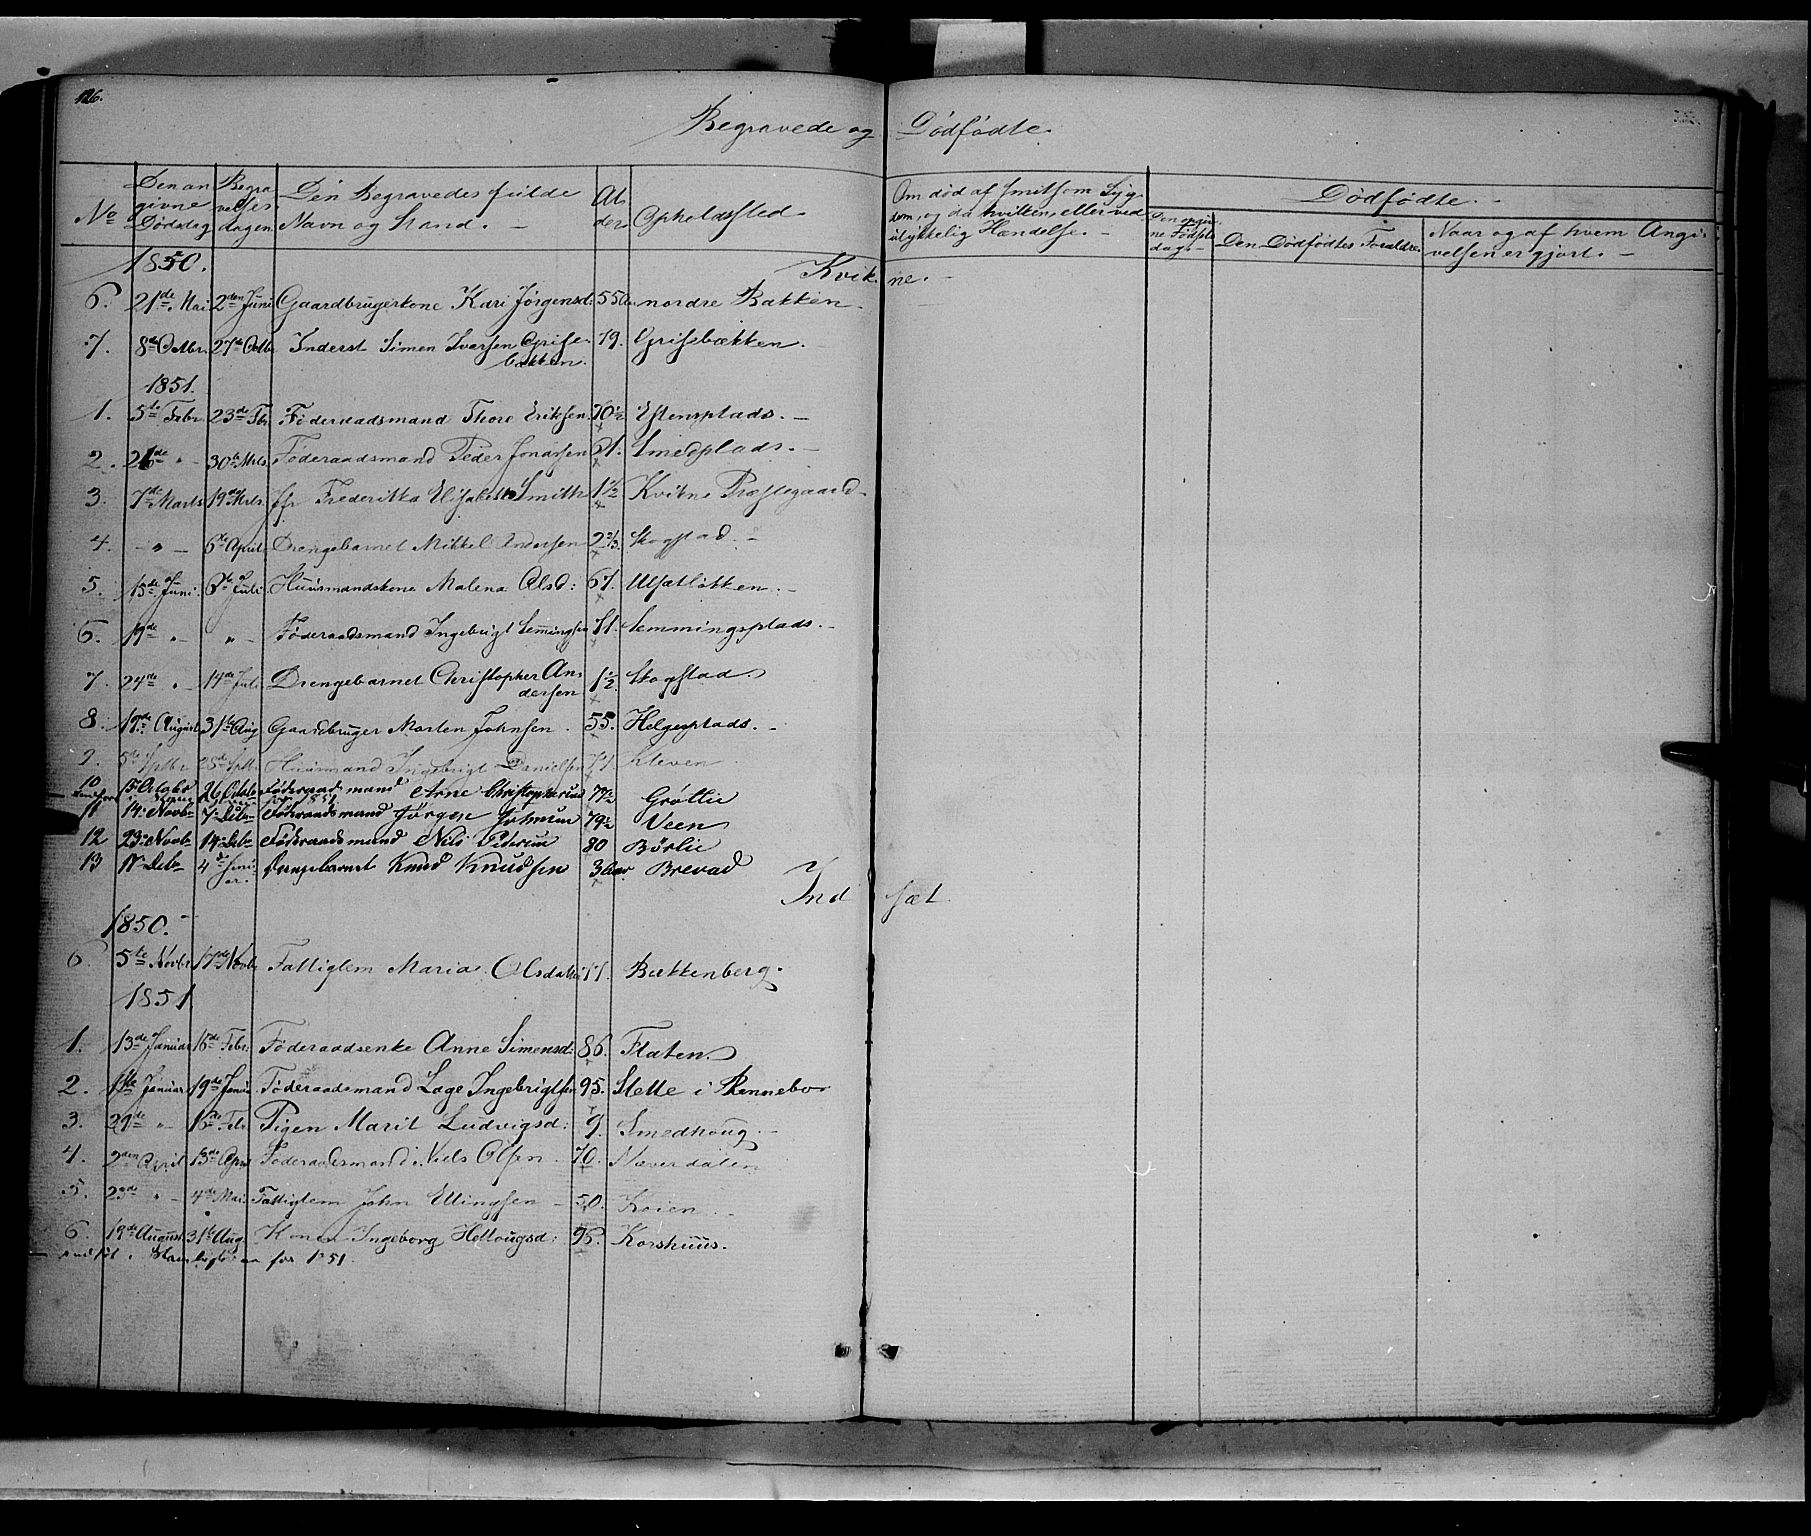 126.
Begravede og Dødfødte.
No
Den an
givne
Dødsdag
Begra
velses
dagen
Den Begravedes fulde
Navn og Stand. -
Al
der
Opholdssted.
Om død af smitsom Syg
dom, og da hvilken, eller ved
ulykkelig Hændelse. -
Dødfødte. -
Den angiv
ne Fødsels
dag. -
Den Dødfødtes Forældre.
Naar og af hvem Angi
velsen er gjort. -
1850.
Kvikne. -
6. 21de Mai 2den Juni Gaardbrugerkone Kari Jørgensd: 55 Aar nordre Bakken
7. 8de Octbr. 27de Octbr Inderst Simen Iversen Grise
bækken. 79. Grisebækken.
1851.
1. 5te Febr 23de Fbr Føderaadsmand Thore Eriksen 70½ Estensplads. -
2. 26de " - 30te Mrts Føderaadsmand Peder Jonassen 61. Smedplads. -
3. 7de Marts 19de Mrts. Frederikka Elisabeth Smith 1½ Kvikne Præstegaard -
4. - " - 6te April Drengebarnet Mikkel Andersen 2⅔ Skogstad. -
5. 15de Juni. 6te Juli Huusmandskone Malena Olsd: 67. Ulsætløkken. -
6. 19de " - " - Føderaadsmand Ingebrigt Semmingsen 71. Semmingsplads. -
7. 24de " - 14de Juli Drengebarnet Christopher An
dersen 1½ Skogstad.
8. 19de August 31te Aug Gaardbruger Morten Johnsen. 55. Helgesplads. -
9. 5te Sptbr 28de Sptbr Huusmand Ingebrigt Danielsen 77. Kleven
10 15 Octobr 26 Octobr Føderaadsmand Arne Christophersen 77½ Grøtlie
11 14. Novbr 7. Debr Føderaadsmand Jørgen Johnsen 79½ Veen
12 23. Novbr 14. Debr Føderaadsmand Nils Pedersen 80 Børlie
13 17. Debr 4de Janu
ar. Drengebarnet Knud Knudsen 3 Aar Brevad
Indsæt
1850.
6. 5te Novbr 17de Novbr Fattiglem Maria Olsdatter 77. Bækkenberg.
1851
1. 13de Januar 16de Febr: Føderaadsenke Anne Simensd: 86. Flaten.
2. Januar 19de Janua Føderaadsmand Lage Ingebrigtsen 95. Stette i Rennebo
3. 29de " - 16de Febr. Pigen Marit Ludvigsd: 9. Smedhoug. -
4. 2den April 13de April Føderaadsmand Niels Olsen 70. Næverdalen
5. 23de " - 4de Mai. Fattiglem John Ellingsen - 50. Koien. -
6. 19de August 31te Aug. Konen Ingeborg Helleugsd: 95. Korshuus.
for 1851.